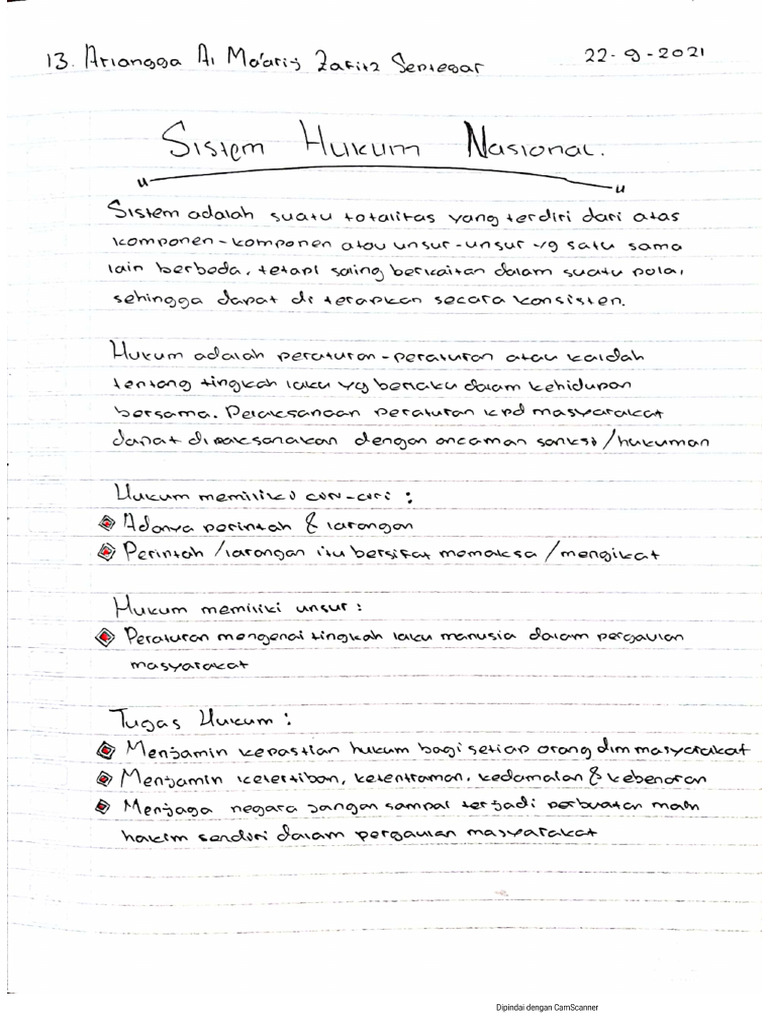 13. Ariangga Al Ma'arij Zafitz Seregar
22-9-2021
Sistem Hukum Nasional.
Sistem adalah suatu totalitas yang terdiri dari atas
komponen-komponen atau unsur-unsur yg satu sama
lain berbeda, tetapi saling berkaitan dalam suatu pola,
sehingga dapat di terapkan secara konsisten.
Hukum adalah peraturan-peraturan atau kaidah
tentang tingkah laku yg berlaku dalam kehidupan
bersama. Pelaksanaan peraturan kpd masyarakat
dapat dilaksanakan dengan ancaman sanksi/hukuman
Hukum memiliki ciri-ciri :
Adanya perintah & larangan
Perintah /larangan itu bersifat memaksa/mengikat
Hukum memiliki unsur :
Peraturan mengenai tingkah laku manusia dalam pergaulan
masyarakat
Tugas Hukum :
Menjamin kepastian hukum bagi setiap orang dlm masyarakat
Menjamin ketertiban, ketentraman, kedamaian & kebenaran
Menjaga negara jangan sampai terjadi perbuatan main
hakim sendiri dalam pergaulan masyarakat
Dipindai dengan CamScanner